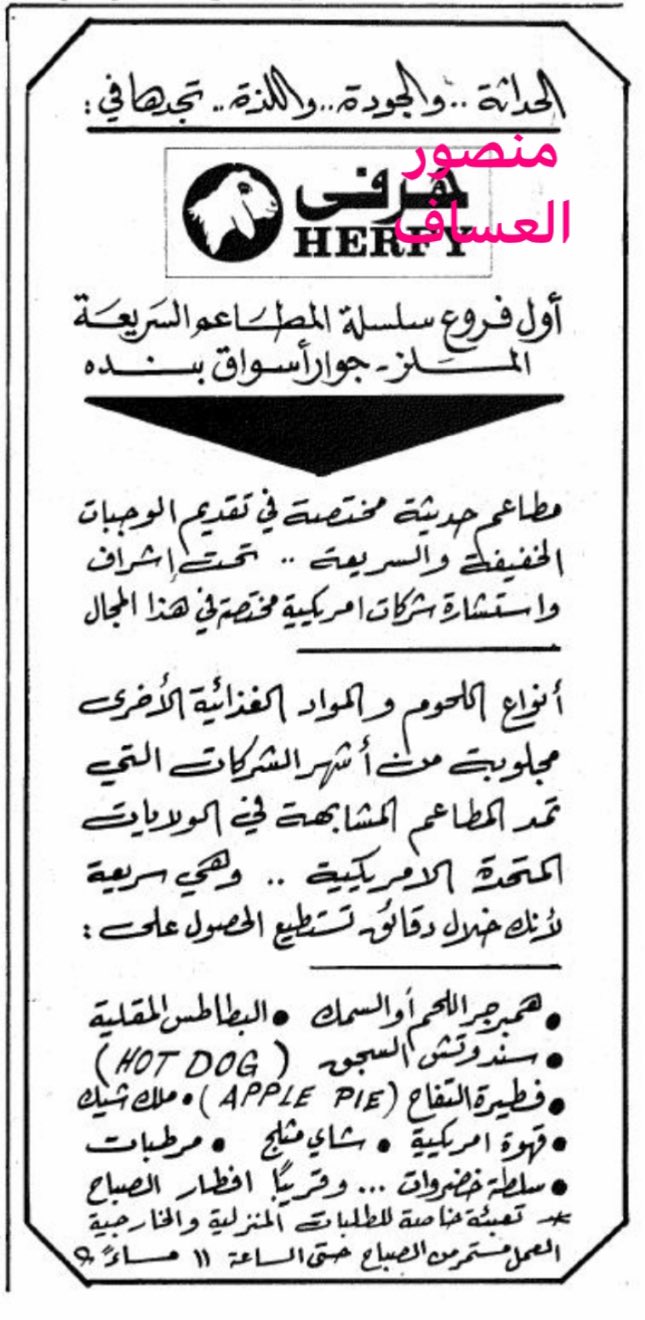 الحداثة .. والجودة .. واللذة .. تجدها في :
منصور
العساف
هرفي
HERFY
أول فروع سلسلة المطاعم السريعة
الملز - جوار أسواق بنده
مطاعم حديثة مختصة في تقديم الوجبات
الخفيفة والسريعة .. تحت إشراف
واستشارة شركات امريكية مختصة في هذا المجال
أنواع اللحوم والمواد الغذائية الأخرى
مجلوبة من أشهر الشركات التي
تمد المطاعم المشابهة في الولايات
المتحدة الامريكية .. وهي سريعة
لأنك خلال دقائق تستطيع الحصول على :
• همبرجر اللحم أو السمك • البطاطس المقلية
• سندوتش السجق ( HOT DOG )
• فطيرة التفاح ( APPLE PIE ) • ملك شيك
• قهوة امريكية • شاي مثلج • مرطبات
• سلطة خضروات ... وقريبًا افطار الصباح
* تعبئة خاصة للطلبات المنزلية والخارجية
العمل مستمر من الصباح حتى الساعة ١١ مساءً